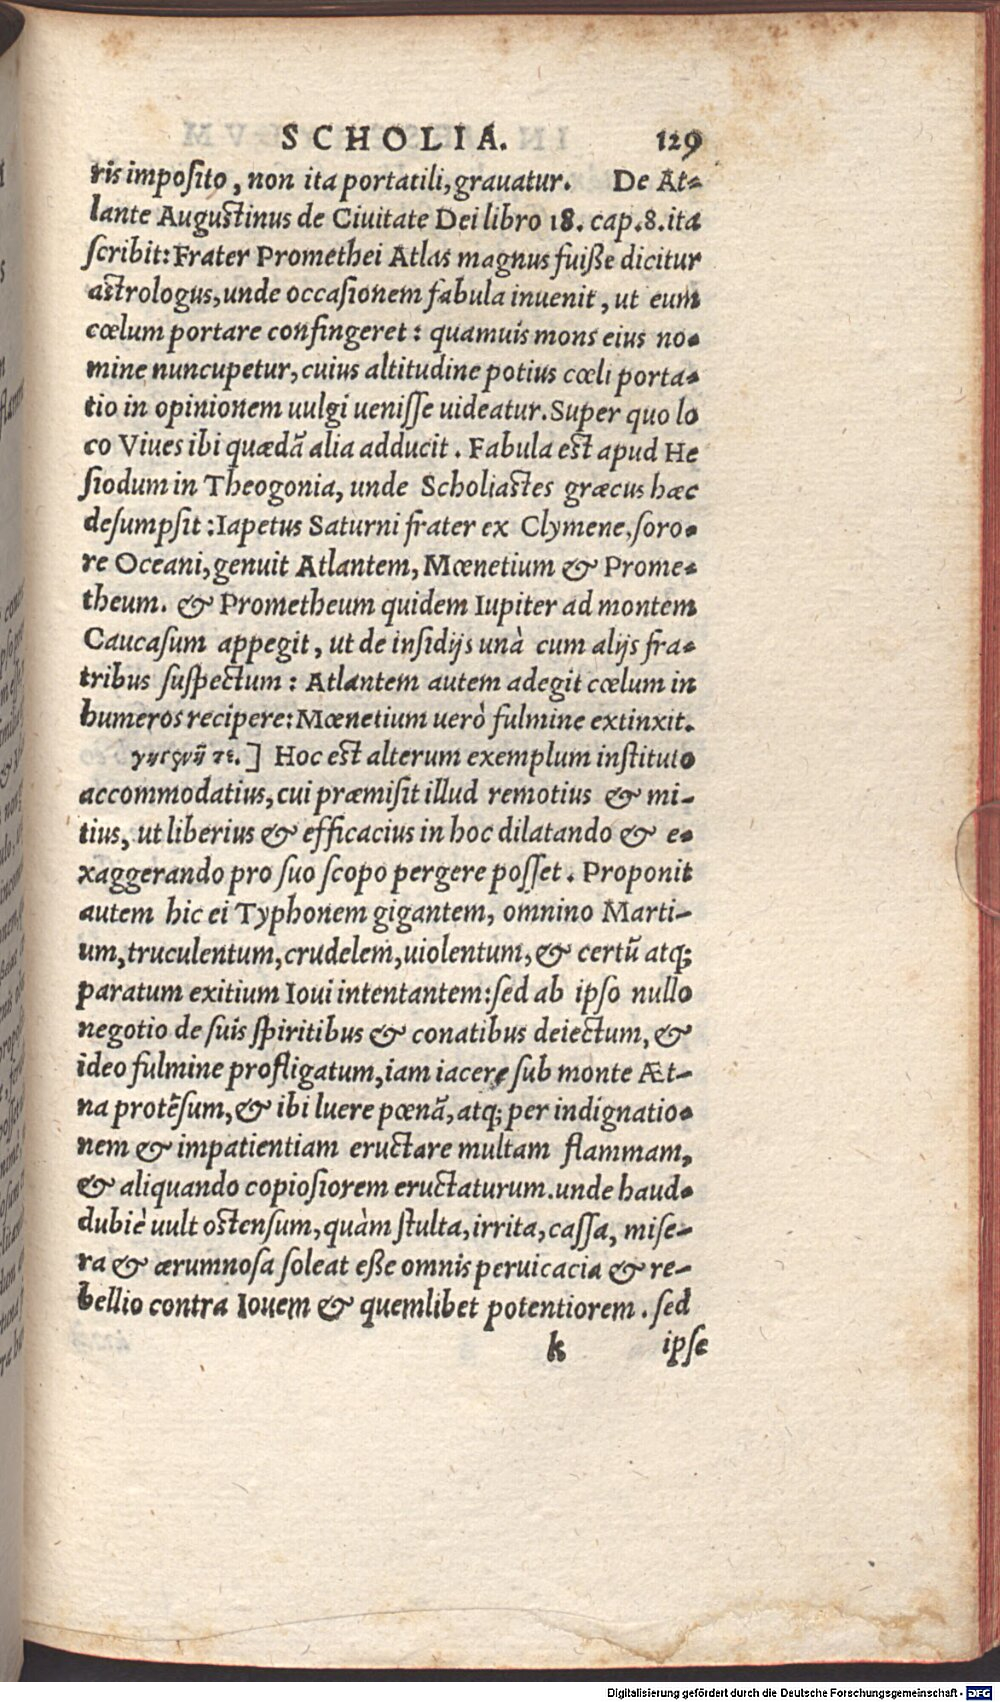 SCHOLIA. 129
ris imposito, non ita portatili, grauatur. De At-
lante Augustinus de Ciuitate Dei libro 18. cap. 8. ita
scribit: Frater Promethei Atlas magnus fuisse dicitur
astrologus, unde occasionem fabula inuenit, ut eum
cœlum portare confingeret: quamuis mons eius no-
mine nuncupetur, cuius altitudine potius cœli porta-
tio in opinionem uulgi uenisse uideatur. Super quo lo
co Viues ibi quædã alia adducit. Fabula est apud He
siodum in Theogonia, unde Scholiastes græcus hæc
desumpsit: Iapetus Saturni frater ex Clymene, soro-
re Oceani, genuit Atlantem, Mœnetium & Prome-
theum. & Prometheum quidem Iupiter ad montem
Caucasum appegit, ut de insidijs unà cum alijs fra-
tribus suspectum: Atlantem autem adegit cœlum in
humeros recipere: Mœnetium uerò fulmine extinxit.
] Hoc est alterum exemplum instituto
accommodatius, cui præmisit illud remotius & mi-
tius, ut liberius & efficacius in hoc dilatando & e-
xaggerando pro suo scopo pergere posset. Proponit
autem hic ei Typhonem gigantem, omnino Marti-
um, truculentum, crudelem, uiolentum, & certũ atq;
paratum exitium Ioui intentantem: sed ab ipso nullo
negotio de suis spiritibus & conatibus deiectum, &
ideo fulmine profligatum, iam iacere sub monte Æt-
na protẽsum, & ibi luere pœnã, atq; per indignatio-
nem & impatientiam eructare multam flammam,
& aliquando copiosiorem eructaturum. unde haud-
dubiè uult ostensum, quàm stulta, irrita, cassa, mise-
ra & ærumnosa soleat esse omnis peruicacia & re-
bellio contra Iouem & quemlibet potentiorem. sed
k ipse
Digitalisierung gefördert durch die Deutsche Forschungsgemeinschaft - DFG